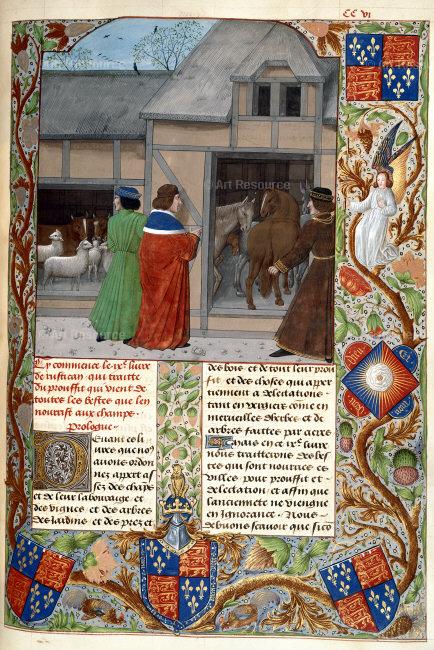 CC VI
© Art Resource
© Art Resource
Cy commence le ix^e livre
de rustican qui traitte
du prouffit qui vient de
toutes les bestes que l'en
nourrist aux champs
Prologue
Devant ces li
ures que nous
auons ordon
nes appert as
ses des chaps
et de leur labourage et
des vignes et des arbres
des Jardins et des prez et
des bois et de tout leur prou
fit et des choses qui apper
tiennent a delectations
tant en vergiers cōme en
merueilles dherbes et de
arbres faittes par
Mais en ce ix^e liure
nous traitterons des bes
tes qui sont nourries es
villes pour prouffit et
delectation et affin que
lancienneté ne viengne
en Ignorance Nous
deuons scauoir que sico